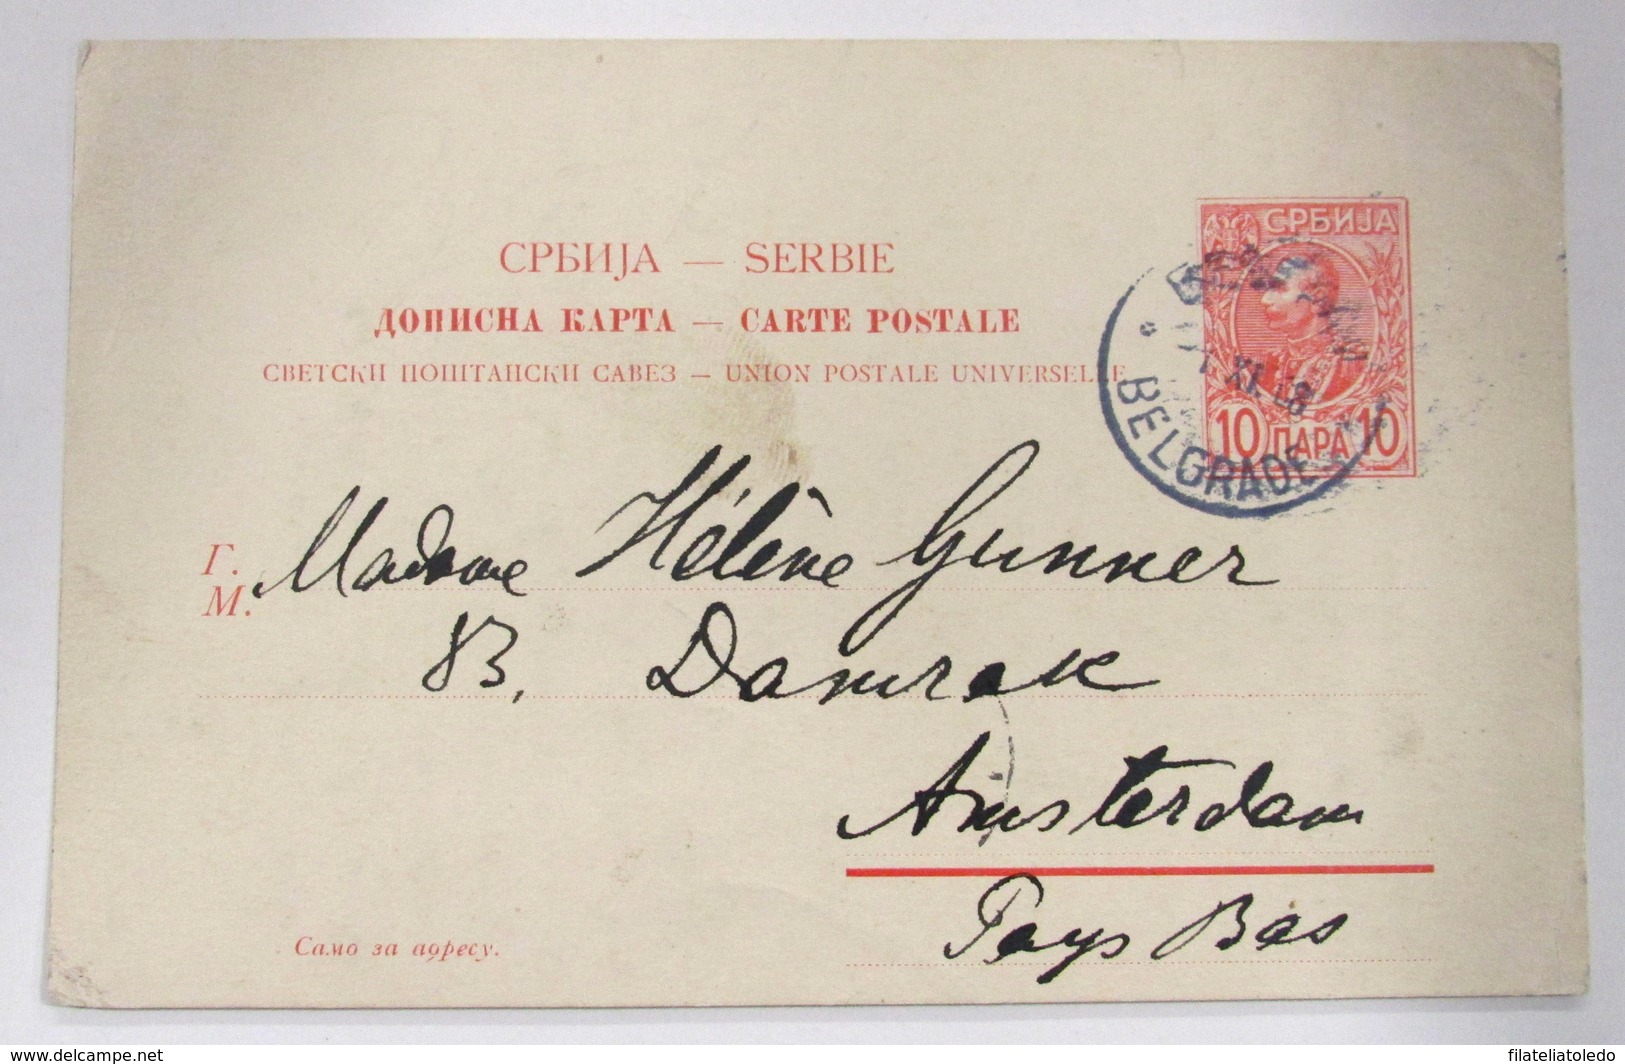 СРБИЈА — SERBIE
ДОПИСНА КАРТА — CARTE POSTALE
СВЕТСКИ ПОШТАНСКИ САВЕЗ — UNION POSTALE UNIVERSELLE
СРБИЈА
10 ПАРА 10
BELGRADE
XI.
Г.
М.
Madame Hélène Gunner
83, Damrak
Amsterdam
Pays Bas
Само за адресу.
delcampe.net
filateliatoledo